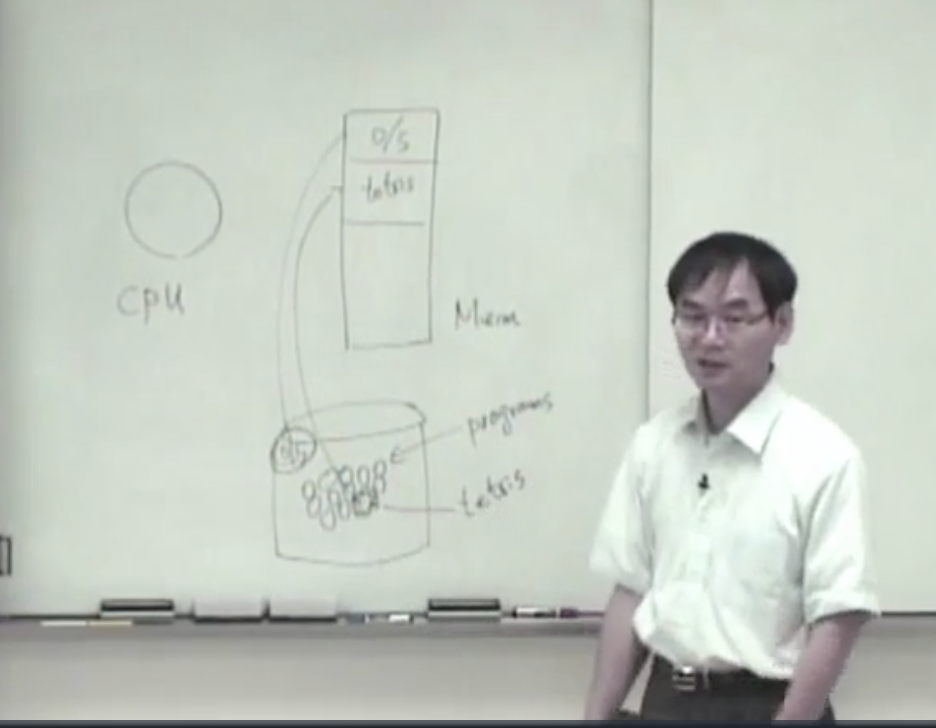 O/S
tetris
CPU
Mem
programs
O/S
tetris